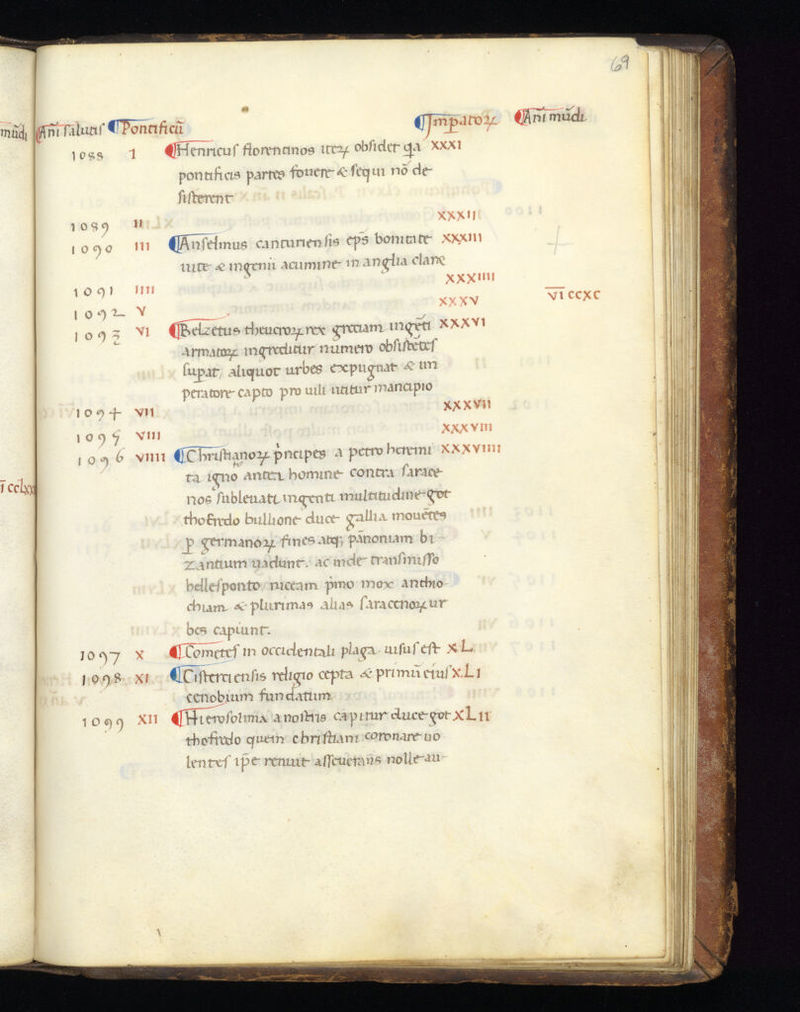 69
Añi salutis Pontificũ Imꝑatoꝝ Añi mũdi
1088 I Henricus florentinos iteꝝ obsidet qa XXXI
pontificis partes fouere & sequi nõ de
sisterent
1089 II XXXII
1090 III Anselmus canturiensis eps bonitate XXXIII
uite & ingenii acumine in anglia claret
1091 IIII XXXIIII
VI CCXC
1092 V XXXV
1093 VI Belzetus theucroꝝ rex greciam ingẽti XXXVI
armatoꝝ ingreditur numero obsistẽtes
suꝑat, aliquot urbes expugnat & im
peratore capto pro uili utitur mancipio
1094 VII XXXVII
1095 VIII XXXVIII
1096 VIIII Christianoꝝ pncipes a petro heremi XXXVIIII
ta igno antea homine contra sarace
nos subleuati ingenti multitudine got
thofredo bullione duce gallia mouẽtes
ꝑ germanoꝝ fines atqꝫ pãnoniam bi
zantium uadunt. ac inde transmisso
hellesponto niceam pmo mox anthio
chiam & plurimas alias saracenoꝝ ur
bes capiunt.
CCLXX
1097 X Cometes in occidentali plaga uisus est XL
1098 XI Cisterciensis religio cepta & primũ eius XLI
cenobium fundatum
1099 XII Hierosolima a nostris capitur duce got XLII
thofredo quem christiani coronare uo
lentes ipe renuit asseuerans nolle au